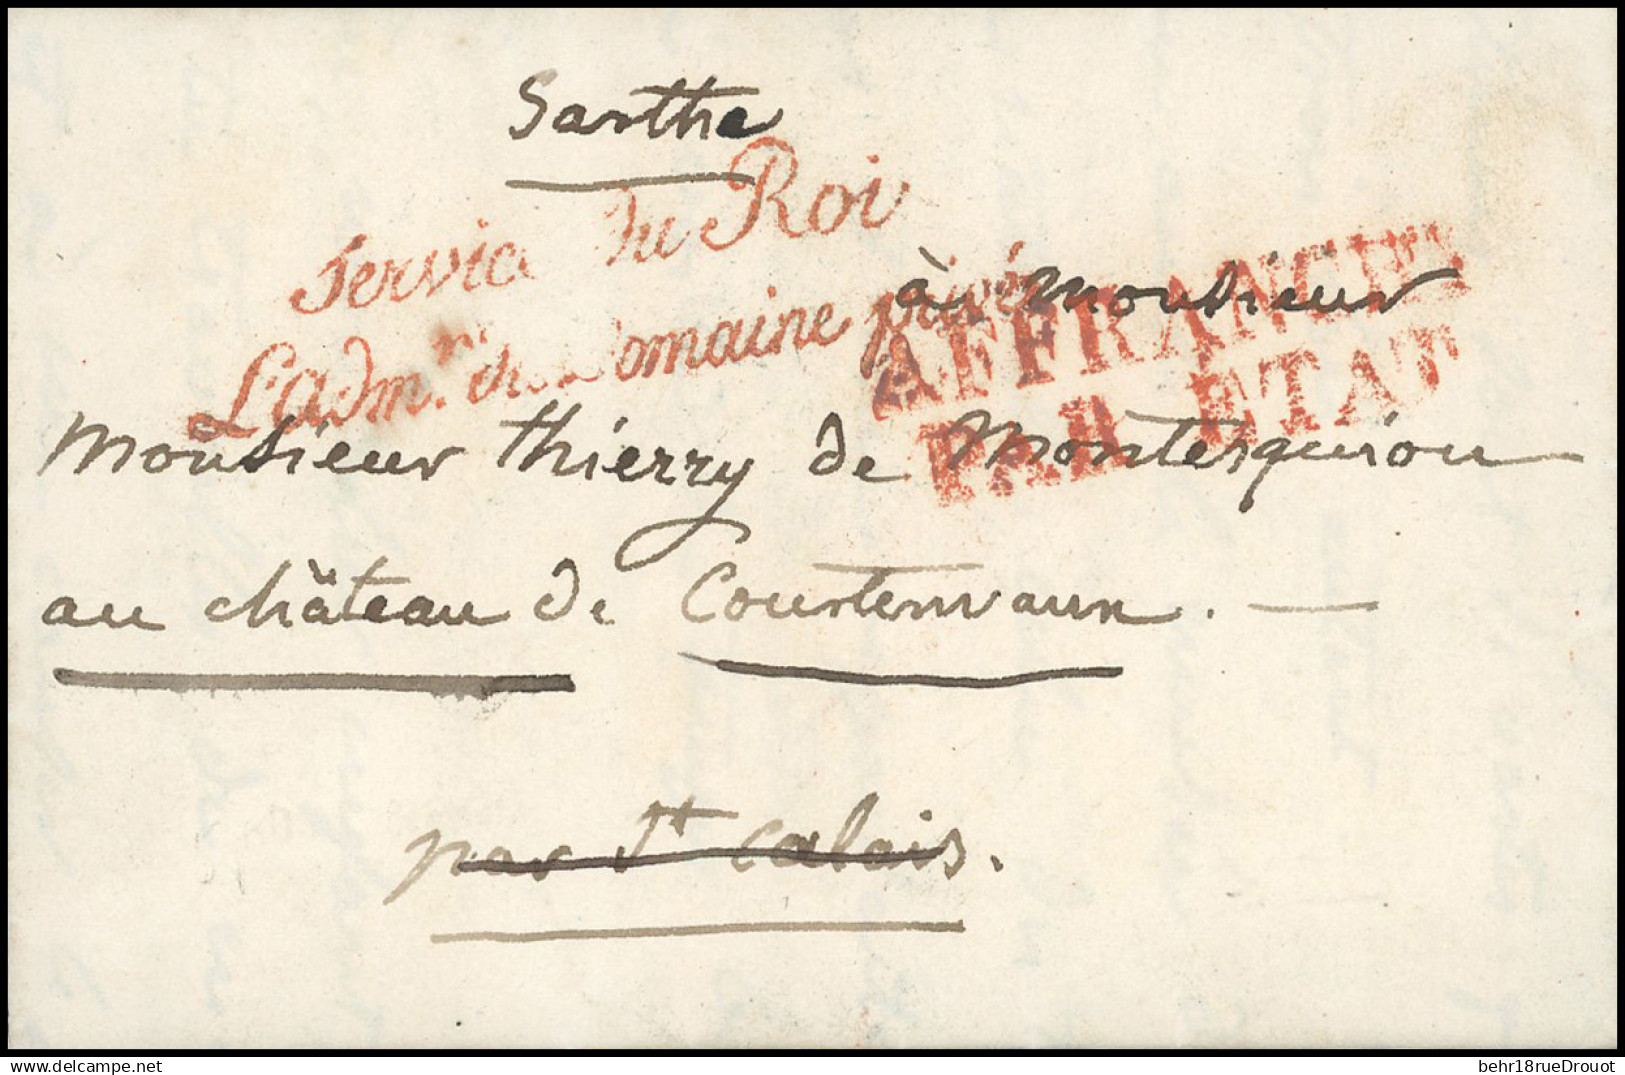 Sarthe
Service du Roi
L'adm.on du Domaine privé
à Monsieur
AFFRANCHI
PAR ETAT
Monsieur thierry de Montesquiou
au château de Courtenvaux. —
par St Calais.
behr18rueDrouot